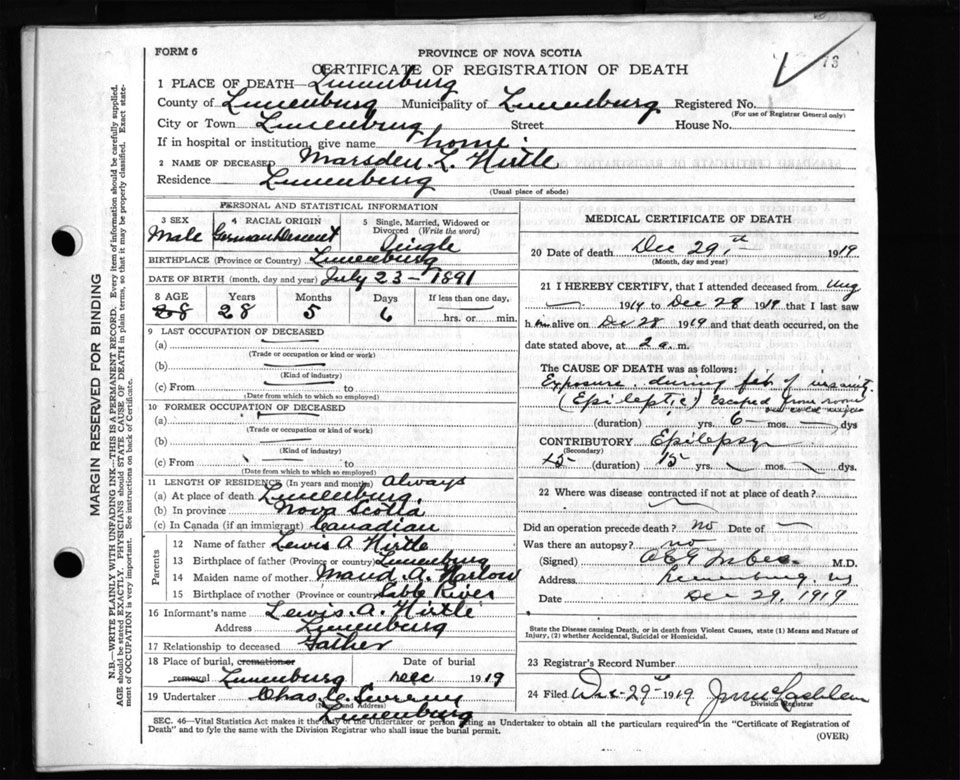 FORM 6
PROVINCE OF NOVA SCOTIA
CERTIFICATE OF REGISTRATION OF DEATH
1 PLACE OF DEATH— Lunenburg
County of Lunenburg Municipality of Lunenburg Registered No.
(For use of Registrar General only)
City or Town Lunenburg Street House No.
If in hospital or institution, give name home
2 NAME OF DECEASED Marsden. L. Hirtle
Residence Lunenburg
(Usual place of abode)
PERSONAL AND STATISTICAL INFORMATION
3 SEX Male
4 RACIAL ORIGIN German Descent
5 Single, Married, Widowed or Divorced (Write the word) Single
BIRTHPLACE (Province or Country) Lunenburg
DATE OF BIRTH (month, day and year) July 23 - 1891
8 AGE Years Months Days If less than one day,
28 28 5 6 hrs. or min.
9 LAST OCCUPATION OF DECEASED
(a)
(Trade or occupation or kind or work)
(b)
(Kind of industry)
(c) From to
(Date from which to which so employed)
10 FORMER OCCUPATION OF DECEASED
(a)
(Trade or occupation or kind of work)
(b)
(Kind of industry)
(c) From to
(Date from which to which so employed)
11 LENGTH OF RESIDENCE (In years and months) Always
(a) At place of death Lunenburg.
(b) In province Nova Scotia
(c) In Canada (if an immigrant) Canadian
Parents
12 Name of father Lewis A Hirtle
13 Birthplace of father (Province or country) Lunenburg
14 Maiden name of mother Maud A. Harlow
15 Birthplace of mother (Province or country) Sable River
16 Informant's name Lewis. A. Hirtle
Address Lunenburg
17 Relationship to deceased Father
18 Place of burial, cremation or removal Lunenburg Date of burial Dec 1919
19 Undertaker Chas.
(Name and Address) Lunenburg
MEDICAL CERTIFICATE OF DEATH
20 Date of death Dec 29th 1919
(Month, day and year)
21 I HEREBY CERTIFY, that I attended deceased from Aug
1919 to Dec 28 1919 that I last saw
him alive on Dec 28 1919 and that death occurred, on the
date stated above, at 2 a. m.
The CAUSE OF DEATH was as follows:
Exposure during fit of insanity
(Epileptic) Escaped from room
(duration) yrs. 6 mos. dys
CONTRIBUTORY Epilepsy
(Secondary)
(duration) 15 yrs. mos. dys.
22 Where was disease contracted if not at place of death?
Did an operation precede death? No Date of
Was there an autopsy? no
(Signed) M.D.
Address, Lunenburg, NS
Date Dec 29, 1919
State the Disease causing Death, or in death from Violent Causes, state (1) Means and Nature of
Injury, (2) whether Accidental, Suicidal or Homicidal.
23 Registrar's Record Number
24 Filed Dec 29th 1919
Division Registrar
SEC. 46—Vital Statistics Act makes it the duty of the Undertaker or person acting as Undertaker to obtain all the particulars required in the "Certificate of Registration of
Death" and to fyle the same with the Division Registrar who shall issue the burial permit.
(OVER)
MARGIN RESERVED FOR BINDING
N.B.—WRITE PLAINLY WITH UNFADING INK—THIS IS A PERMANENT RECORD. Every item of information should be carefully supplied.
AGE should be stated EXACTLY. PHYSICIANS should STATE CAUSE OF DEATH in plain terms, so that it may be properly classified. Exact statement of OCCUPATION is very important. See instructions on back of Certificate.